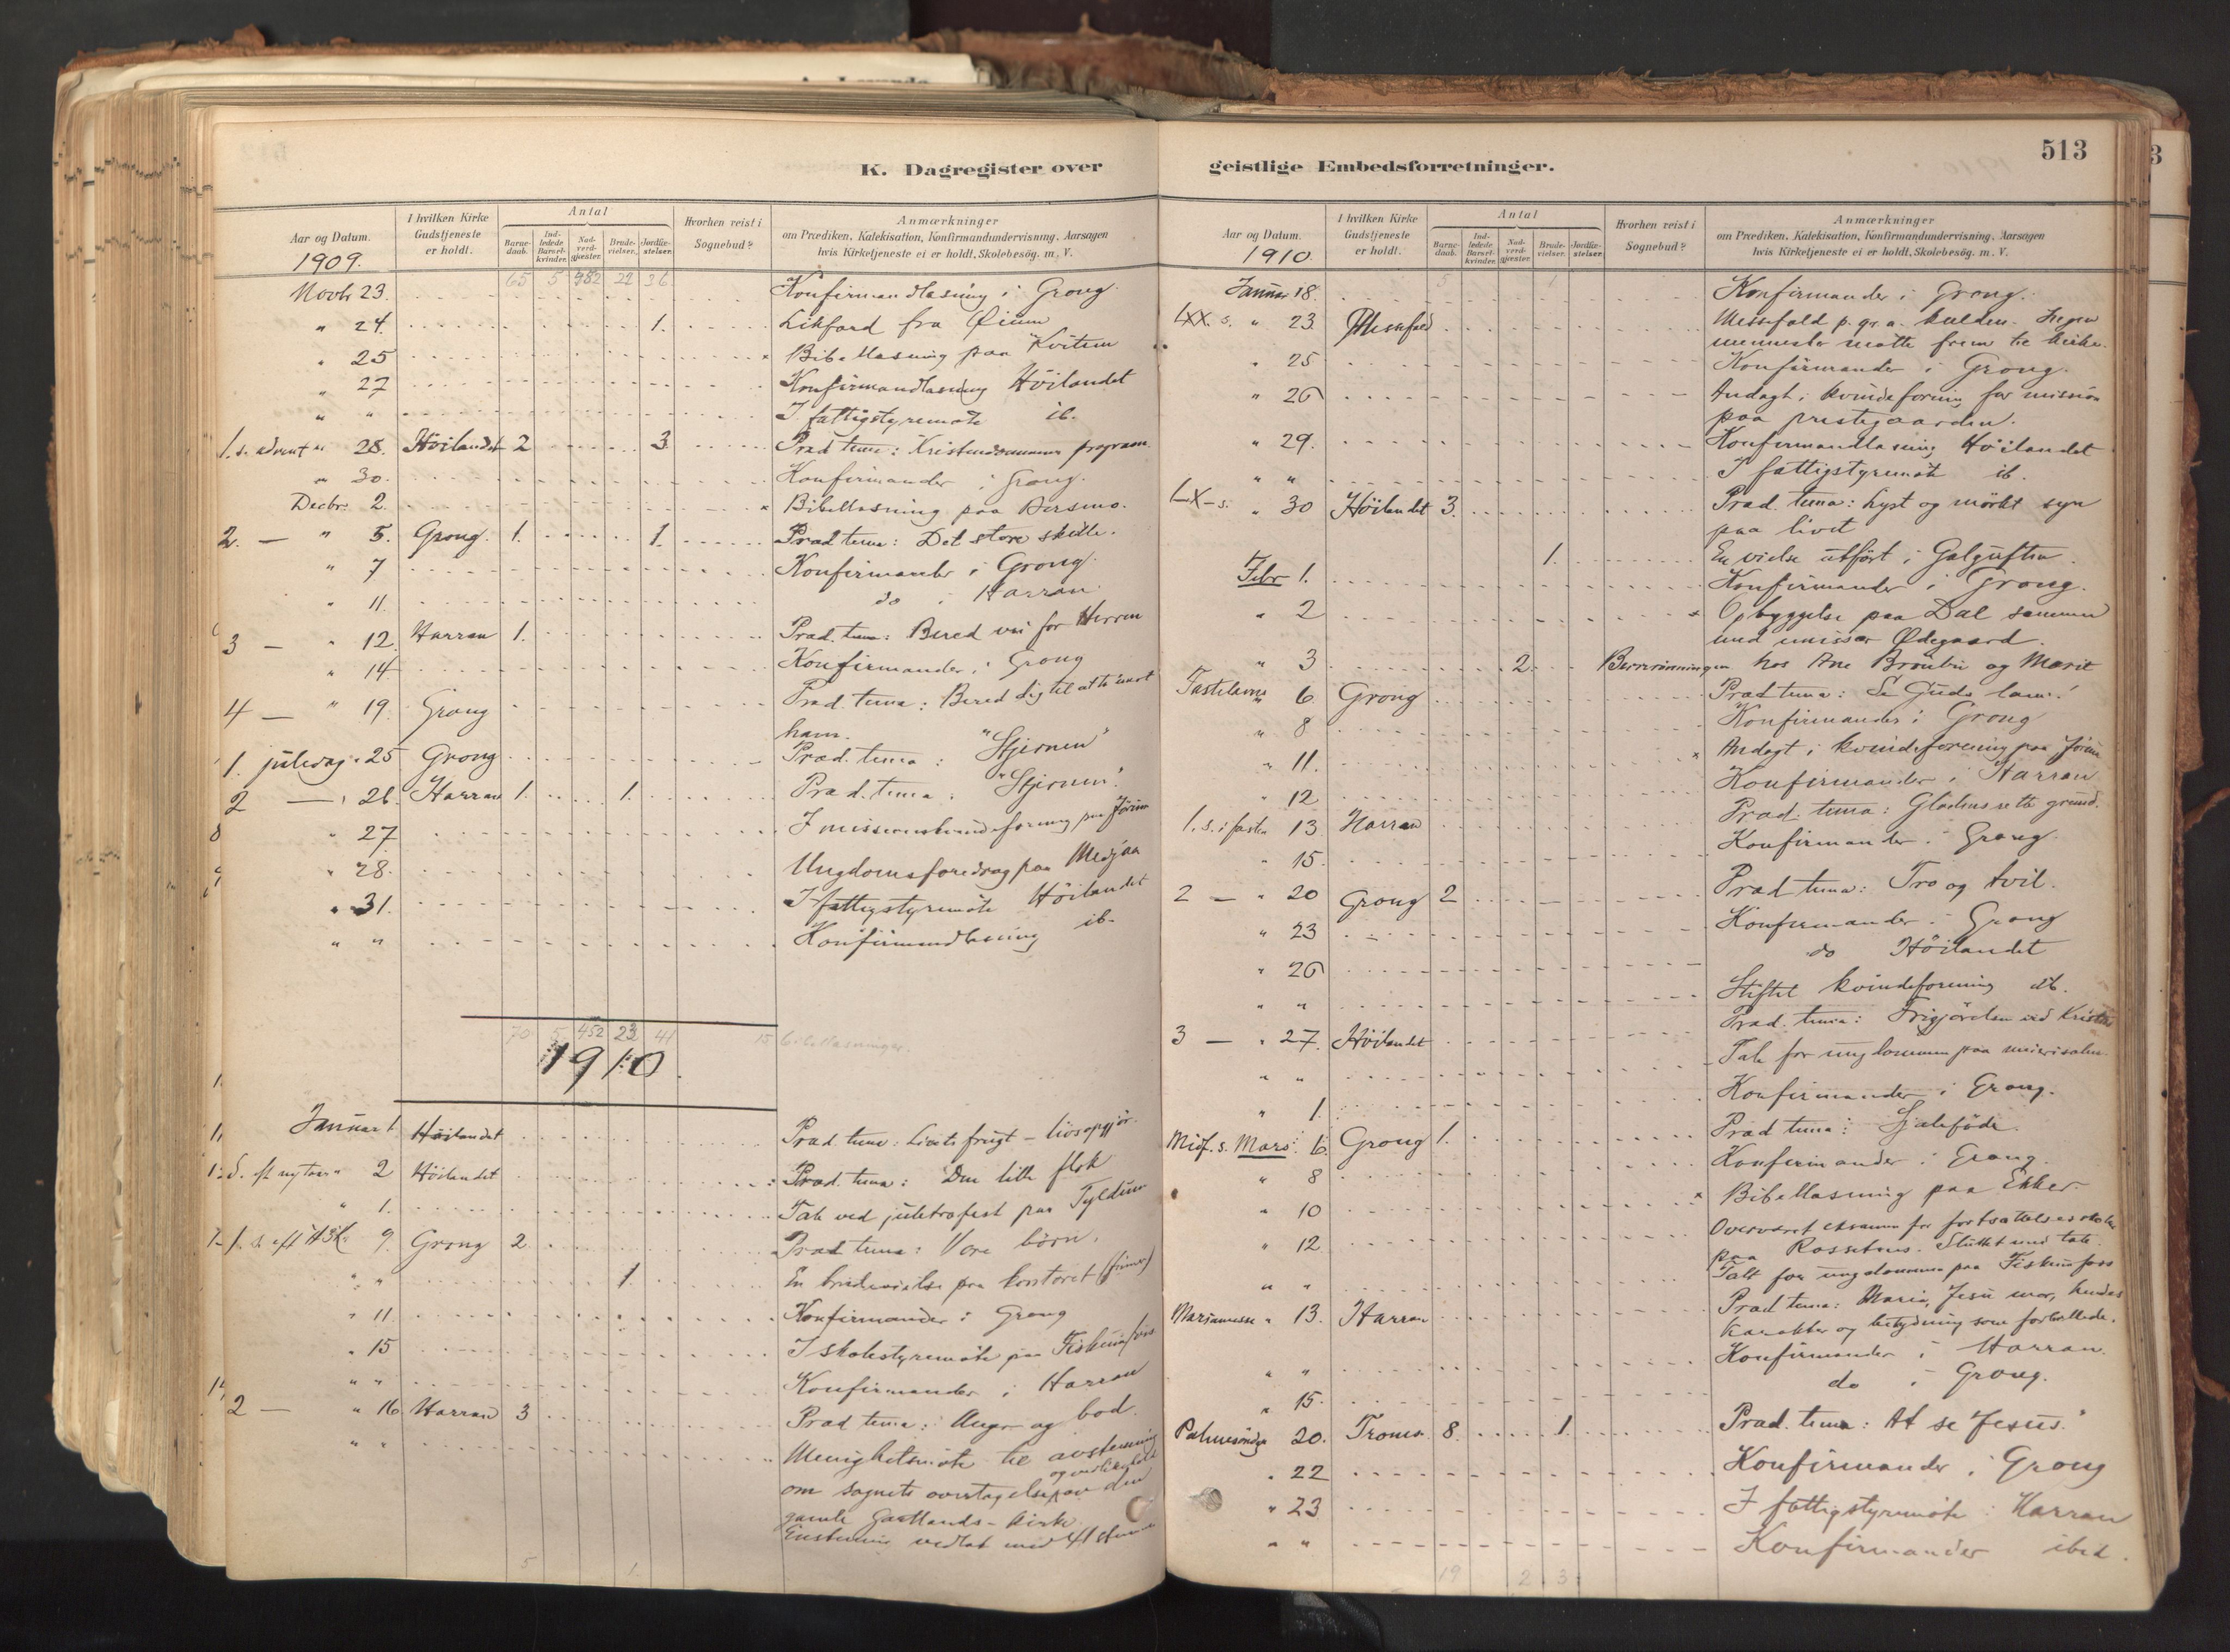 513
K. Dagregister over
geistlige Embedsforretninger.
Aar og Datum.
1909.
I hvilken Kirke
Gudstjeneste
er holdt.
Antal
Barne-
daab.
Ind-
ledede
Barsel-
kvinder.
Nad-
verd-
gjester.
Brude-
vielser.
Jordfæ-
stelser.
Hvorhen reist i
Sognebud?
Anmærkninger
om Prædiken, Katekisation, Konfirmandundervisning, Aarsagen
hvis Kirketjeneste ei er holdt, Skolebesøg. m. V.
65 5 452 22 36
Novbr 23. Konfirmandlæsning i Grong.
" 24. 1. Likfærd fra
" 25 × Bibellæsning paa Kvitum
" 27 Konfirmandlæsning Höilandet
" " I fattigstyremøte ib.
1. s. advent " 28. Höilandet 2 3. Præd. tema: Kristendommens program.
" 30. Konfirmander i Grong.
Decbr. 2. × Bibellæsning paa Bersmo.
2. — " 5. Grong. 1. 1. Præd tema: Det store skille.
" 7 Konfirmander i Grong.
" 11. do i Harran.
3 — " 12. Harran 1. Præd. tema: Bered vei for Herren
" 14 Konfirmander i Grong
4 — " 19. Grong Præd. tema: Bered dig til at
ham.
1. juledag " 25 Grong Præd. tema: "Stjernen"
2 — " 26. Harran 1. 1. Præd. tema: "Stjernen".
" 27 I missionskvindeforening paa Jørum
" 28. Ungdomsforedrag paa Medjaa
" 31. I fattigstyremøte Höilandet
" " Konfirmandlæsning ib.
70 5 452 23 41 15 bibellæsninger.
1910.
Januar 1 Höilandet Præd tema: Livets frugt – livsopgjør.
1. s. eft nytaar " 2 Höilandet Præd. tema: Den lille flok
" 1. Tale ved juletræfest paa Tyldum
1. s. eft H3K. 9. Grong 2 Præd tema: Vore børn.
" " 1. En brudevielse paa kontoret
" 11. Konfirmander i Grong
" 15 I skolestyremøte paa Fiskumfoss
" " Konfirmander i Harran
2 — " 16 Harran 3 Præd tema: Anger og bod.
" " Menighetsmøte til avstemning
om sognets overtagelse av den
og vedlikehold
gamle Gartlands-kirke.
Enstemmig vedtat med
5 1.
Aar og Datum.
1910.
I hvilken Kirke
Gudstjeneste
er holdt.
Antal
Barne-
daab.
Ind-
ledede
Barsel-
kvinder.
Nad-
verd-
gjester.
Brude-
vielser.
Jordfæ-
stelser.
Hvorhen reist i
Sognebud?
Anmærkninger
om Prædiken, Katekisation, Konfirmandundervisning, Aarsagen
hvis Kirketjeneste ei er holdt, Skolebesøg. m. V.
5 1
Januar 18. Konfirmander i Grong.
LXX. s. " 23. Messefald Messefald p. gr. a. kulden. Ingen
mennesker møtte frem til kirke.
" 25 Konfirmander i Grong.
" 26 Andagt i kvindeforening for mission
paa prestegaarden.
" 29. Konfirmandlæsning Höilandet
" " I fattigstyremøte ib.
LX – s. " 30 Höilandet 3. Præd. tema: Lyst og mørkt syn
paa livet
1. En vielse utført i Galguften.
Febr 1. Konfirmander i Grong.
" 2 × Opbyggelse paa Dal sammen
med Ødegaard.
" 3 2 hos Ane og Marit
Fastelavns " 6. Grong Præd tema: Se Guds lam!
" 8 Konfirmander i Grong
" 11. × Andagt i kvindeforening paa Jørum
" 12 Konfirmander i Harran
1. s. i fasten 13 Harran Præd. tema: Glædens rette grund.
" 15. Konfirmander i Grong.
2 — " 20 Grong 2 Præd tema: Tro og tvil.
" 23 Konfirmander i Grong
" 26 do Höilandet
" " Stiftet kvindeforening ib.
3 — " 27. Höilandet Præd. tema: Frigjørelsen ved Kristus
" " Tale for ungdommen paa meierisalen.
" 1. Konfirmander i Grong.
Midf. s. Mars. 6. Grong 1. Præd tema: Sjæleføde.
" 8 Konfirmander i Grong.
" 10 × Bibellæsning paa Ekker.
" 12 Overværet eksamen for fortsættelsesskolen
paa Rossetnes. Sluttet med tale.
" " Talt for ungdommen paa Fiskumfoss
Mariamesse " 13. Harran Præd tema: Maria, Jesu mor, hendes
karakter og betydning som forbillede.
" " Konfirmander i Harran.
" 15. do i Grong.
Palmesøndag 20. Trones. 8. 1. Præd. tema: At se "Jesus."
" 22 Konfirmander i Grong
" 23 I fattigstyremøte. Harran
" " Konfirmander ibid.
19 2 3